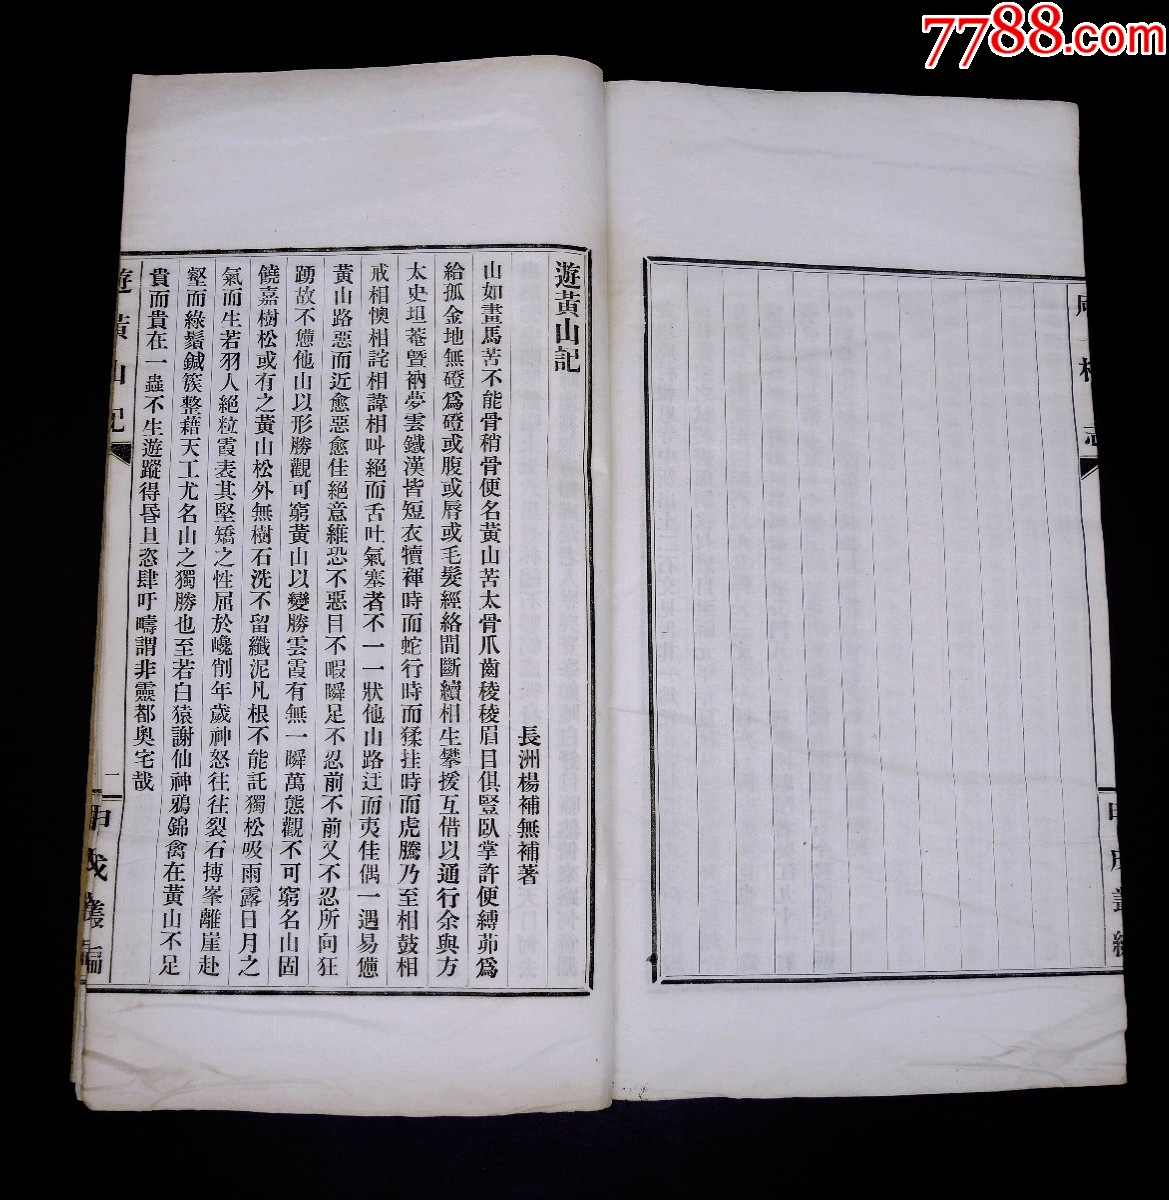 7788.com
遊黃山記
長洲楊補無補著
山如畫馬苦不能骨稍骨便名黃山苦太骨爪齒稜稜眉目俱豎臥掌許便縛茆爲
給孤金地無磴爲磴或腹或脣或毛髮經絡間斷續相生攀援互借以通行余與方
太史坦菴暨衲夢雲鐵漢皆短衣犢褌時而蛇行時而猱挂時而虎騰乃至相鼓相
戒相懊相詫相諱相叫絕而舌吐氣塞者不一一狀他山路迂而夷佳偶一遇易憊
黃山路惡而近愈惡愈佳絕意維恐不惡目不暇瞬足不忍前不前又不忍所向狂
踴故不憊他山以形勝觀可窮黃山以變勝雲霞有無一瞬萬態觀不可窮名山固
饒嘉樹松或有之黃山松外無樹石洗不留纖泥凡根不能託獨松吸雨露日月之
氣而生若羽人絕粒霞表其堅矯之性屈於巉削年歲神怒往往裂石搏峯離崖赴
壑而綠鬚鍼簇整藉天工尤名山之獨勝也至若白猿謝仙神鴉錦禽在黃山不足
貴而貴在一蟲不生遊蹤得昏旦恣肆吁嘻謂非靈都奥宅哉
遊黃山記
二
甲戌叢編